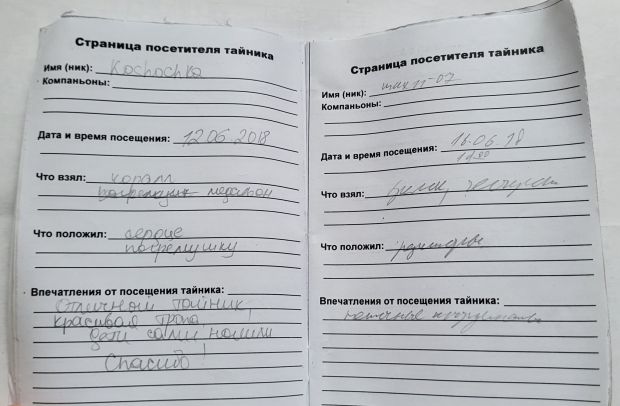 Страница посетителя тайника
Имя (ник): Kochochka
Компаньоны:
Дата и время посещения: 12.06.2018
Что взял: коралл
медальон
Что положил: сердце
погремушку
Впечатления от посещения тайника:
Отличный тайник,
красивая тропа,
дети сами нашли
Спасибо!
Страница посетителя тайника
Имя (ник): max11-07
Компаньоны:
Дата и время посещения: 16.06.18
Что взял:
Что положил:
Впечатления от посещения тайника: